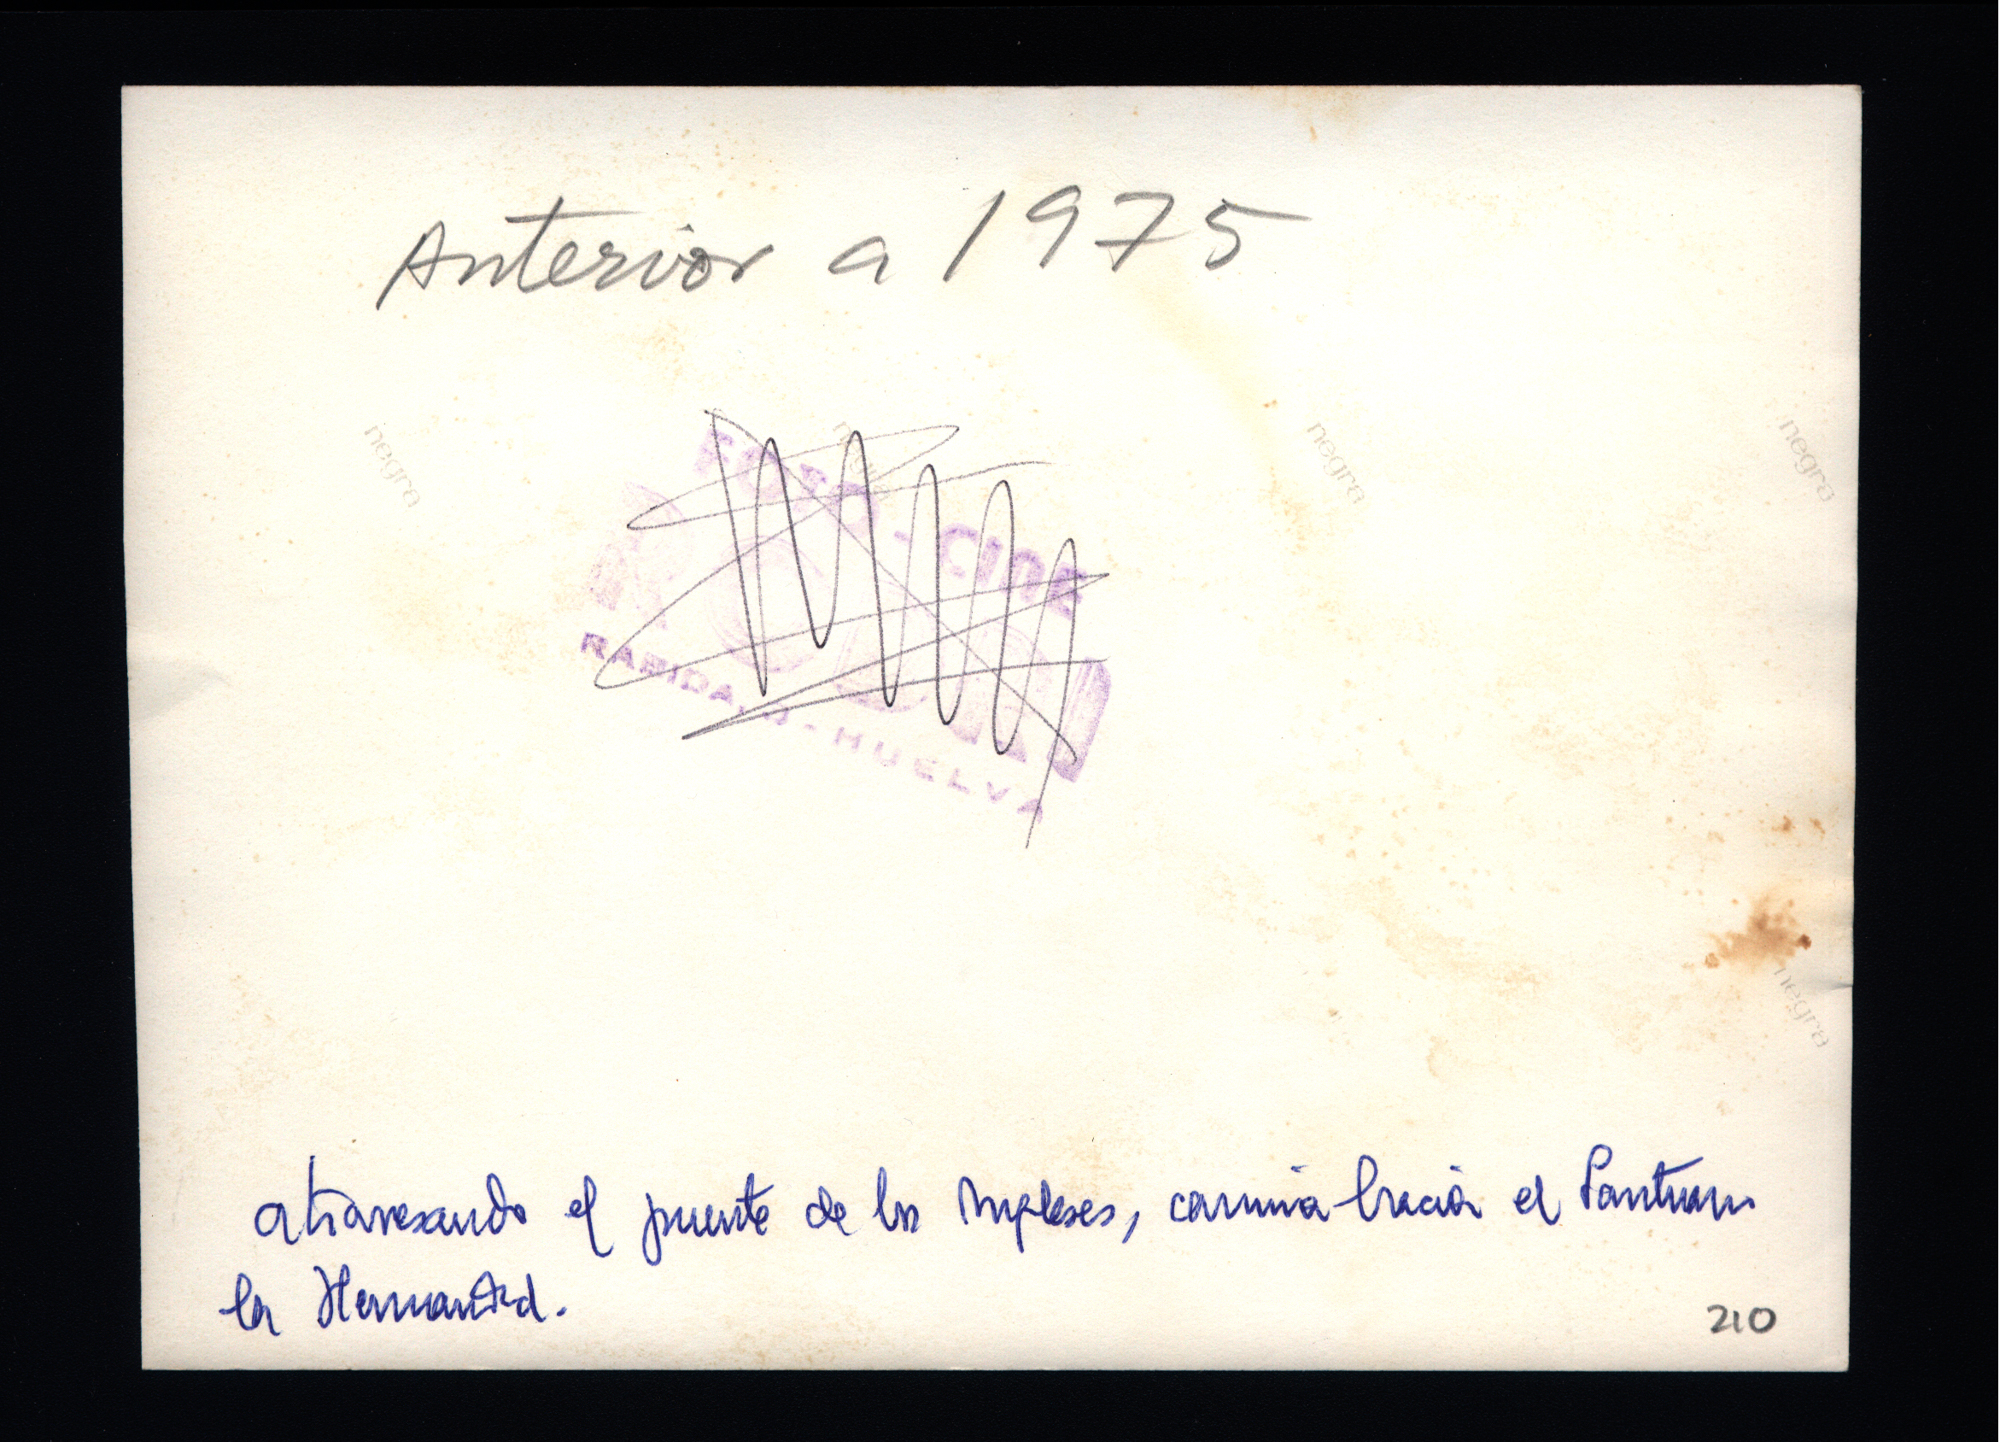 Anterior a 1975
negra negra negra negra
FOTO-CINE
RODRI
RABIDA, - HUELVA
negra
atravesando el puente de los Ingleses, camina hacia el Santuario
la Hermandad.
210